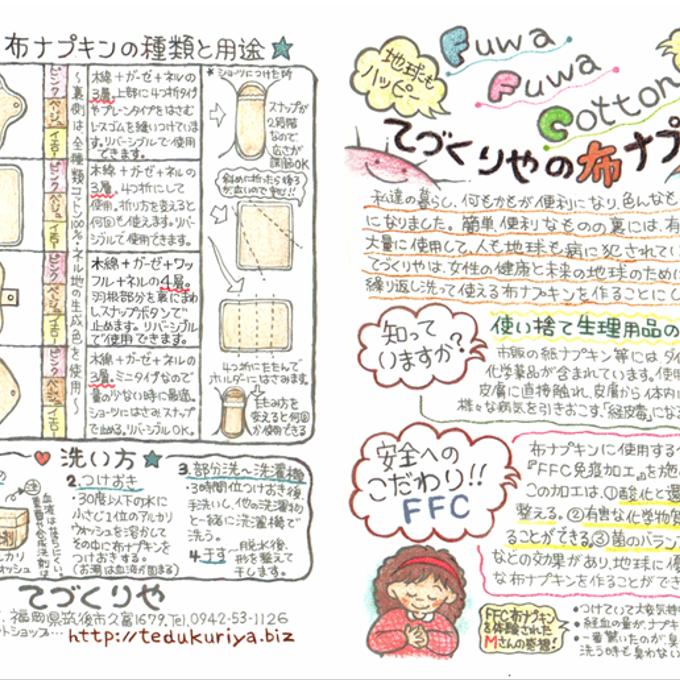 布ナプキンの種類と用途
ピンク
ベージュ
イエロー
〜裏側は、全種類コットン100%ネル地の生成色を使用〜
木綿+ガーゼ+ネルの
3層。上部に4つ折タイプ
やプレーンタイプをはさむ
レースゴムを縫いつけていま
す。リバーシブルで使用
できます。
ピンク
ベージュ
イエロー
木綿+ガーゼ+ネルの
3層。4つ折にして
使用。折り方を変えると
何回も使えます。リバー
シブルで使用できます。
ピンク
ベージュ
イエロー
木綿+ガーゼ+ワッ
フル+ネルの4層。
羽根部分を裏にまわ
しスナップボタンで
止めます。リバーシブル
で使用できます。
ピンク
ベージュ
イエロー
木綿+ガーゼ+ネルの
3層。ミニタイプなので
量の少ない時に最適。
ショーツにはさみスナップ
で止める。リバーシブルOK。
ショーツにつけた所
スナップが
2段階
なので、
広さが
調節OK
斜めに折ったら後ろ
が広いので安心!!
4つ折にたたんで
ホルダーにはさみます。
たたみ方を
変えると何回
か使用できる
洗い方
注
2.つけおき
・30度以下の水に
小さじ1位のアルカリ
ウォッシュを溶かして
その中に布ナプキンを
つけおきする。
(お湯は血液が固まる)
3.部分洗〜洗濯機
・3時間位つけおき後、
手洗いし、他の洗濯物
と一緒に洗濯機で
洗う。
4.干す〜脱水後、
形を整えて
干します。
てづくりや
福岡県筑後市久富1679. Tel.0942-53-1126
トショップ… http://tedukuriya.biz
地球も
ハッピー
Fuwa
Fuwa
Cotton
てづくりやの布ナプ
私達の暮らし、何もかもが便利になり、色んなも
になりました。簡単、便利なものの裏には、有
大量に使用して、人も地球も病に犯されてい
てづくりやは、女性の健康と未来の地球のために
繰り返し洗って使える布ナプキンを作ることにし
知って
いますか?
使い捨て生理用品の
市販の紙ナプキン等には、ダイ
化学薬品が含まれています。使用
皮膚に直接触れ、皮膚から体内に
様々な病気を引きおこす、「経皮毒」になる
安全への
こだわり!!
FFC
布ナプキンに使用する
『FFC免疫加工』を施
この加工は、①酸化と還
整える。②有害な化学物質
ることができる。③菌のバラン
などの効果があり、地球に優
な布ナプキンを作ることができ
FFC布ナプキン
を体験された
Mさんの感想!
・つけていて大変気持
・経血の量が、ナプキ
・一番驚いたのが、臭
洗う時も臭わない